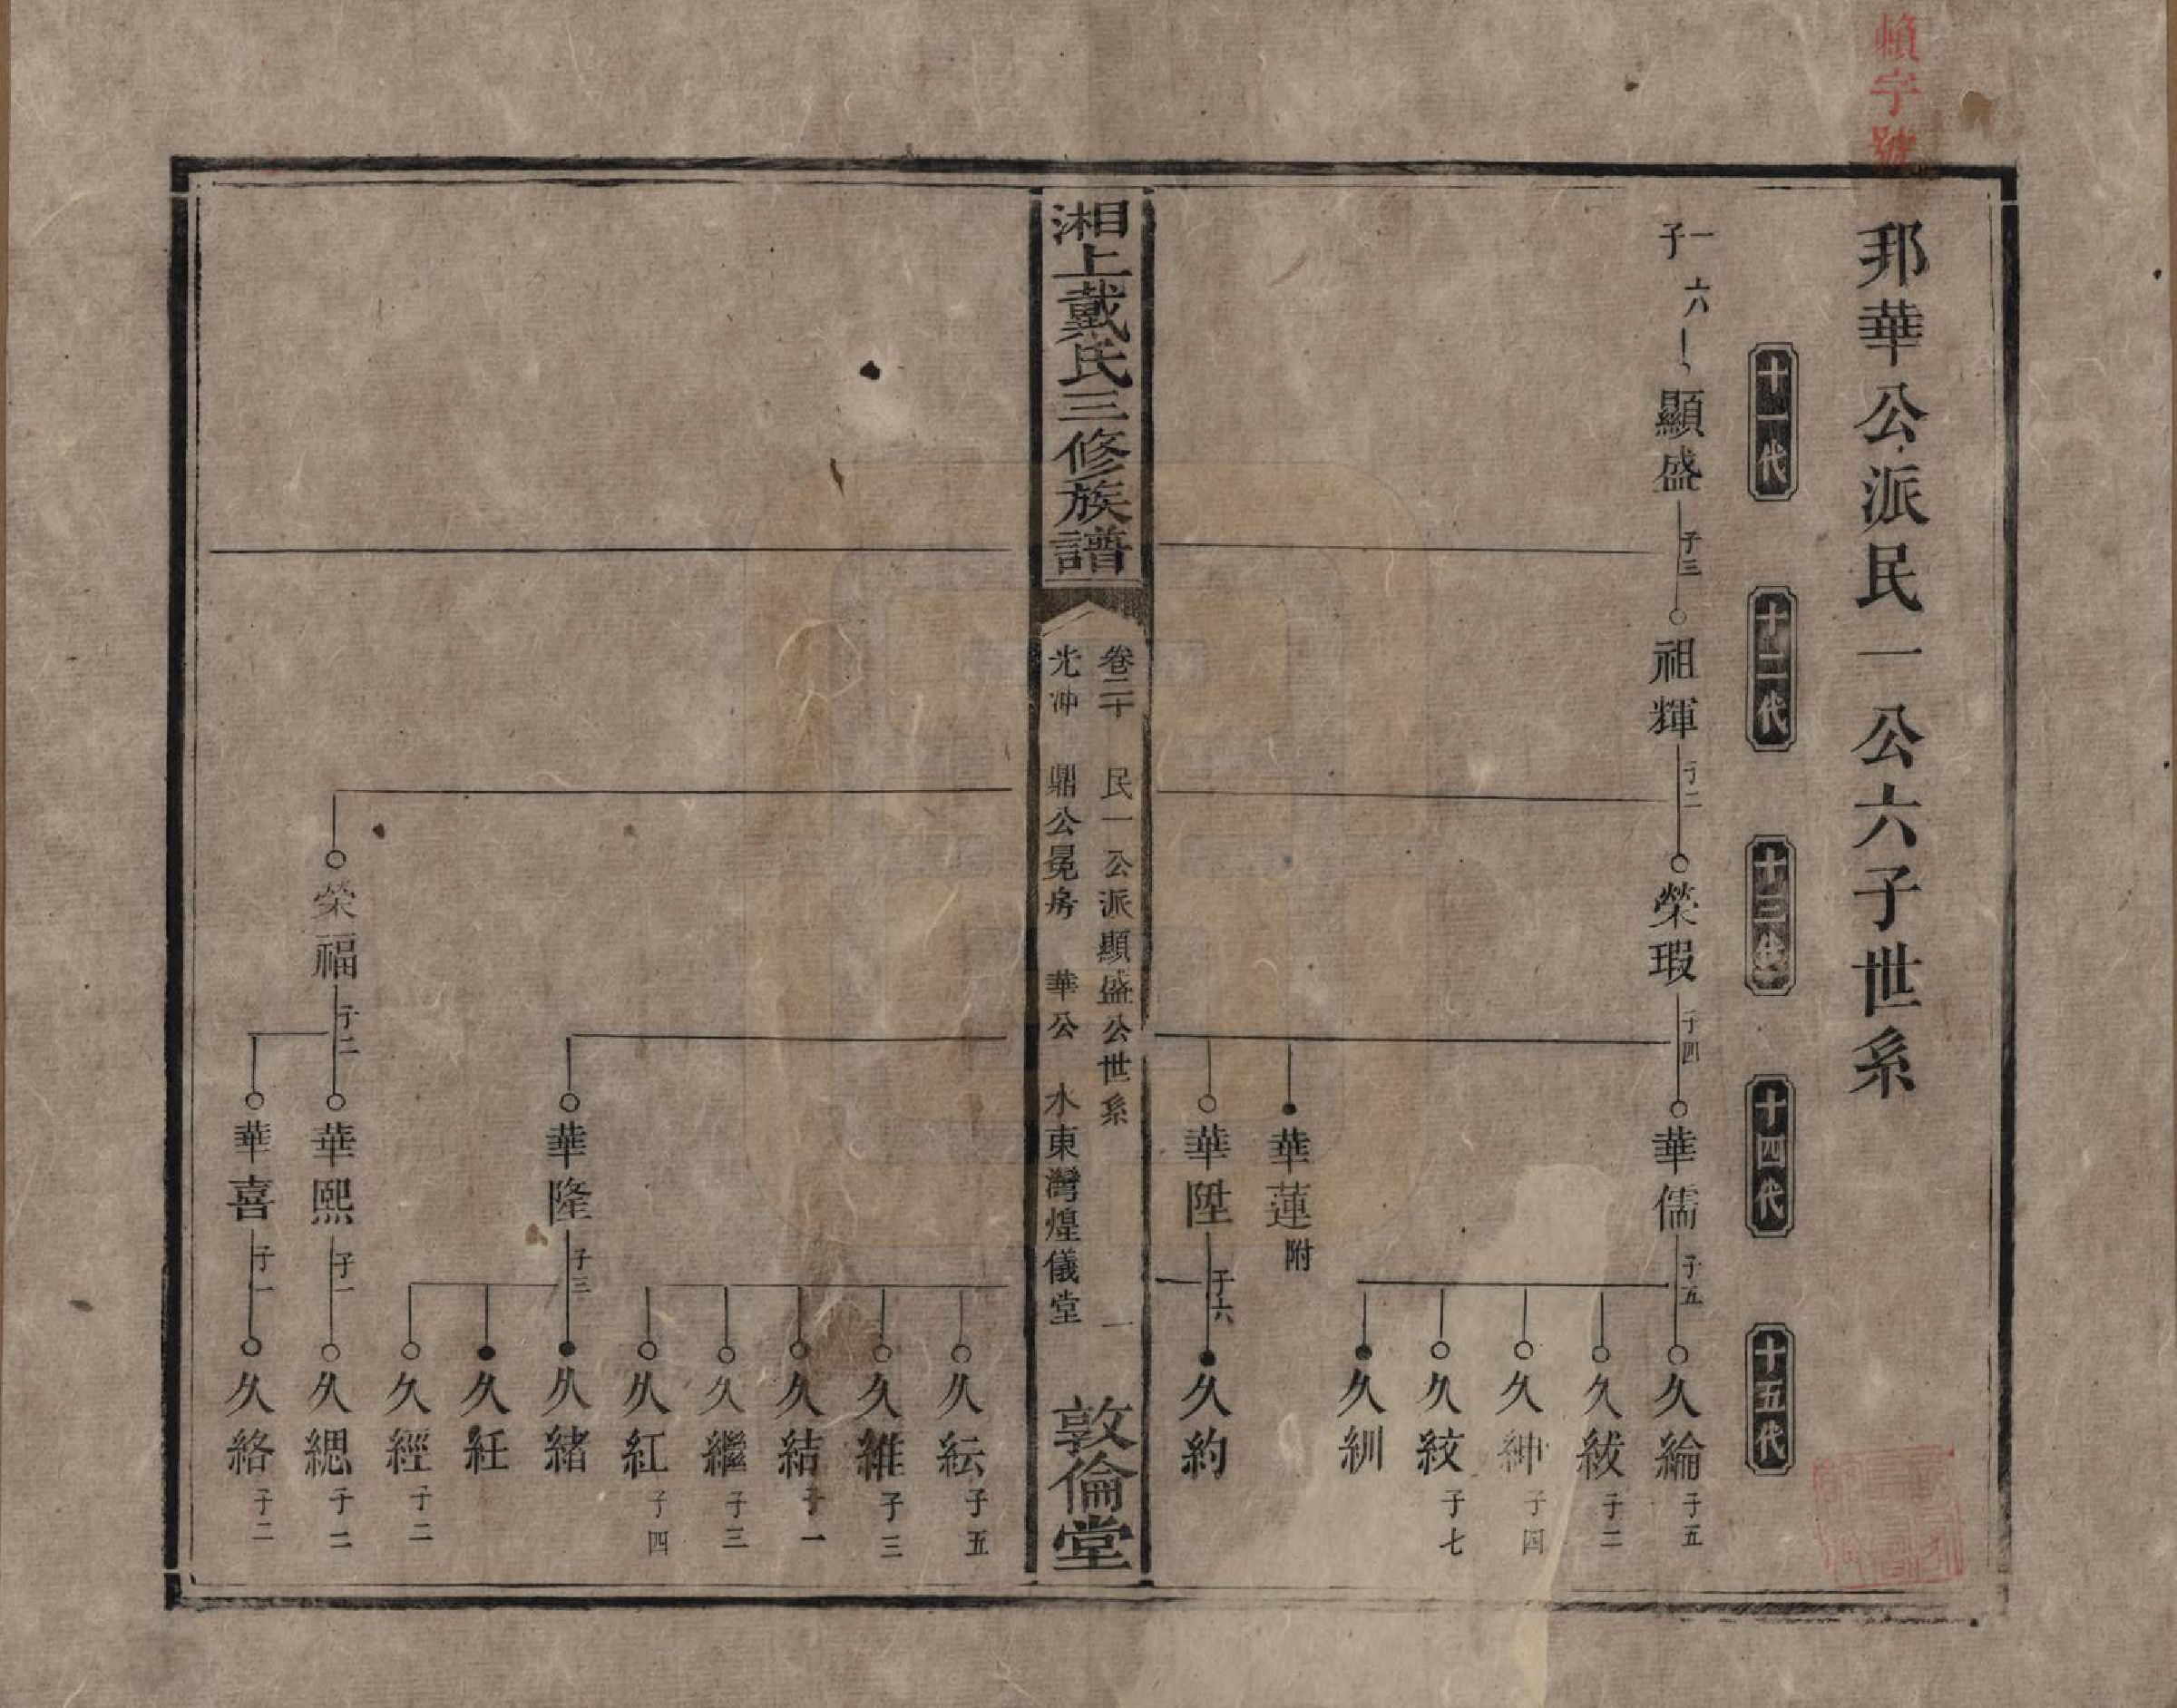 賴字號
邦華公派民一公六子世系
十一代
十二代
十三代
十四代
十五代
一六子
顯盛
子三
祖輝
子二
榮瑕
子四
華儒
子五
久綸
子五
久紱
子二
久紳
子四
久絞
子七
久紃
華蓮
附
華陞
子六
久約
湘上戴氏三修族譜
卷二十 民一公派顯盛公世系 一
光沖 鼎公冕房 華公 水東灣煌儀堂
敦倫堂
久紜
子五
久維
子三
久結
子一
久繼
子三
久紅
子四
華隆
子三
久緒
久紝
久經
子二
榮福
子二
華熙
子一
久緦
子二
華喜
子一
久絡
子二